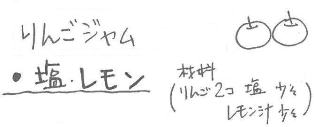 りんごジャム
• 塩・レモン
材料
(りんご2コ 塩 少々
レモン汁 少々)